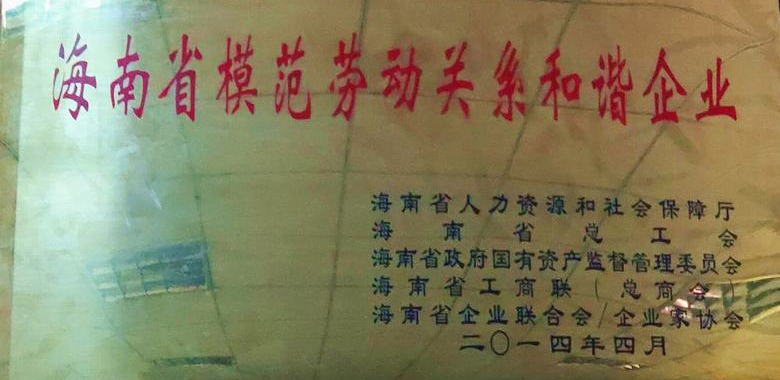 海南省模范劳动关系和谐企业
海南省人力资源和社会保障厅
海南省总工会
海南省政府国有资产监督管理委员会
海南省工商联(总商会)
海南省企业联合会/企业家协会
二〇一四年四月